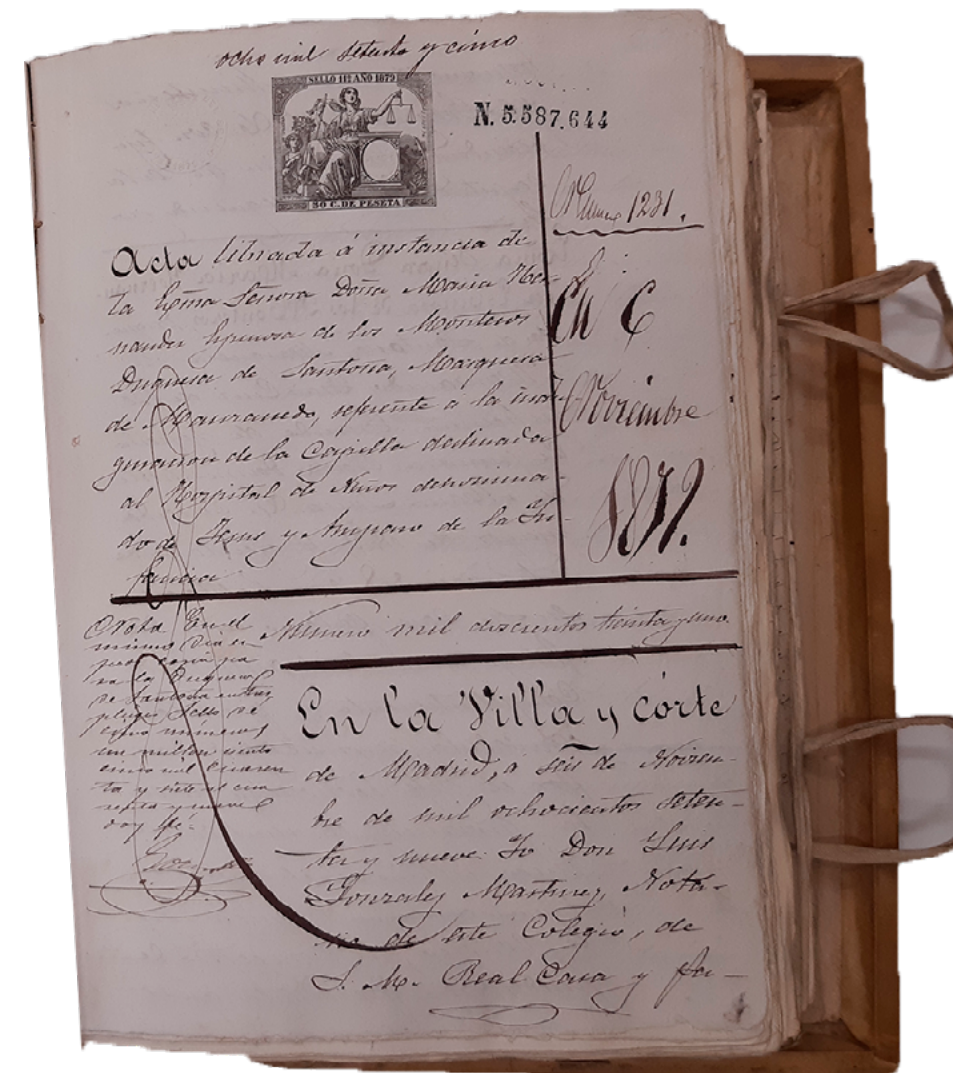 ocho mil setenta y cinco
SELLO 11º AÑO 1879
50 C. DE PESETA
N. 5.587.644
Numero 1231.
En 6
Noviembre
1879.
Acta librada á instancia de
la Exma Señora Doña Maria Her-
nandez Espinosa de los Monteros
Duquesa de Santoña, Marquesa
de Manzanedo, referente á la inau-
guracion de la Capilla destinada
al Hospital de Niños denomina-
do de Jesus y Amparo de la In-
fancia
Numero mil doscientos treinta y uno.
Nota En el
mismo dia es-
pedi copia pa-
ra la Duquesa
de Santoña en tres
pliegos sello de
numeros
un millon ciento
cinco mil cuaren
ta y siete al cin
cuenta y nueve
doy fé.
En la Villa y córte
de Madrid, á seis de Noviem-
bre de mil ochocientos seten-
ta y nueve: Yo Don Luis
Gonzalez Martinez, Nota-
rio de este Colegio, de
S. M. Real Casa y Pa-